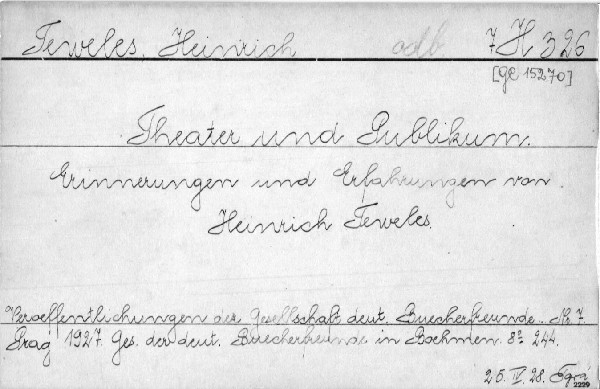 Teweles, Heinrich odb 7 H 326
[ge 15270]
Theater und Publikum.
Erinnerungen und Erfahrungen von
Heinrich Teweles.
Veroeffentlichungen der Gesellschaft deut. Buecherfreunde. Nr. 7.
Prag 1927. Ges. der deut. Buecherfreunde in Boehmen. 8° 244.
25. IV. 28.
2229